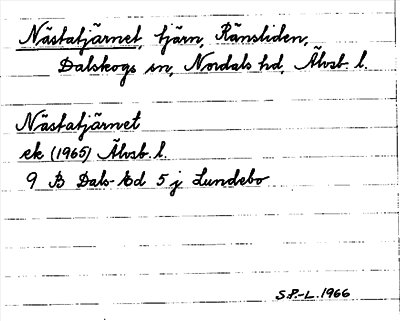 Nästatjärnet, tjärn, Ränsliden,
Dalskogs sn, Nordals hd, Älvsb. l.
Nästatjärnet
ek (1965) Älvsb. l.
9 B Dals-Ed 5 j Lundebo
S.P.-L. 1966